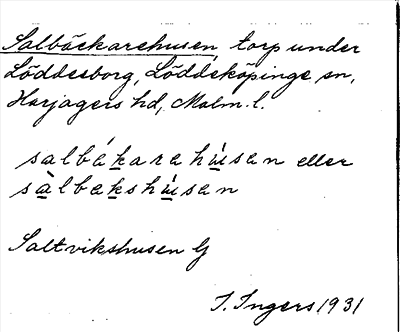 Salbäckarehusen, torp under
Löddesborg, Löddeköpinge sn,
Harjagers hd, Malm. l.
salbákarehúsen eller
sàlbekshúsen
Saltvikshusen G
I. Ingers 1931